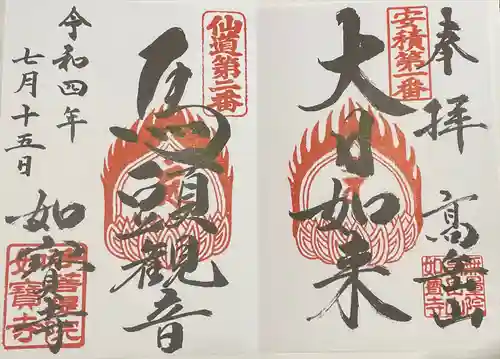 奉拝
安積第一番
大日如来
高嵓山
如寶寺
仙道第二番
馬頭観音
令和四年
七月十五日
如寳寺
如寶寺